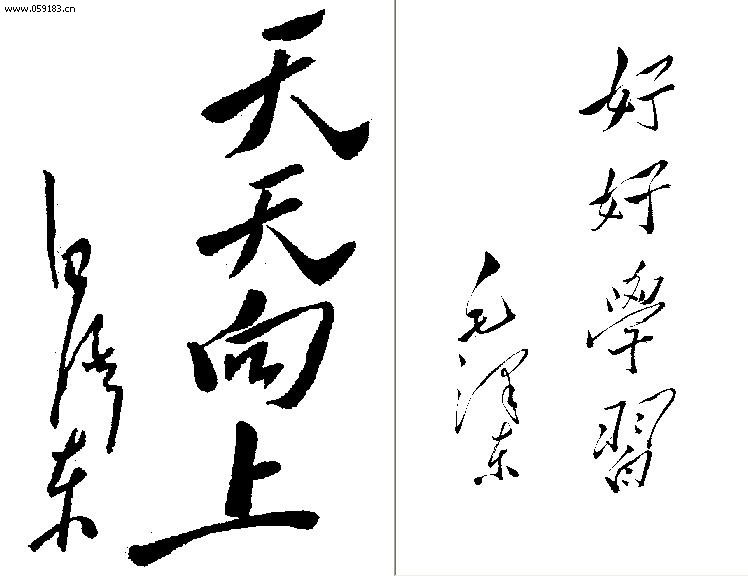 www.059183.cn
好好學習
毛泽东
天天向上